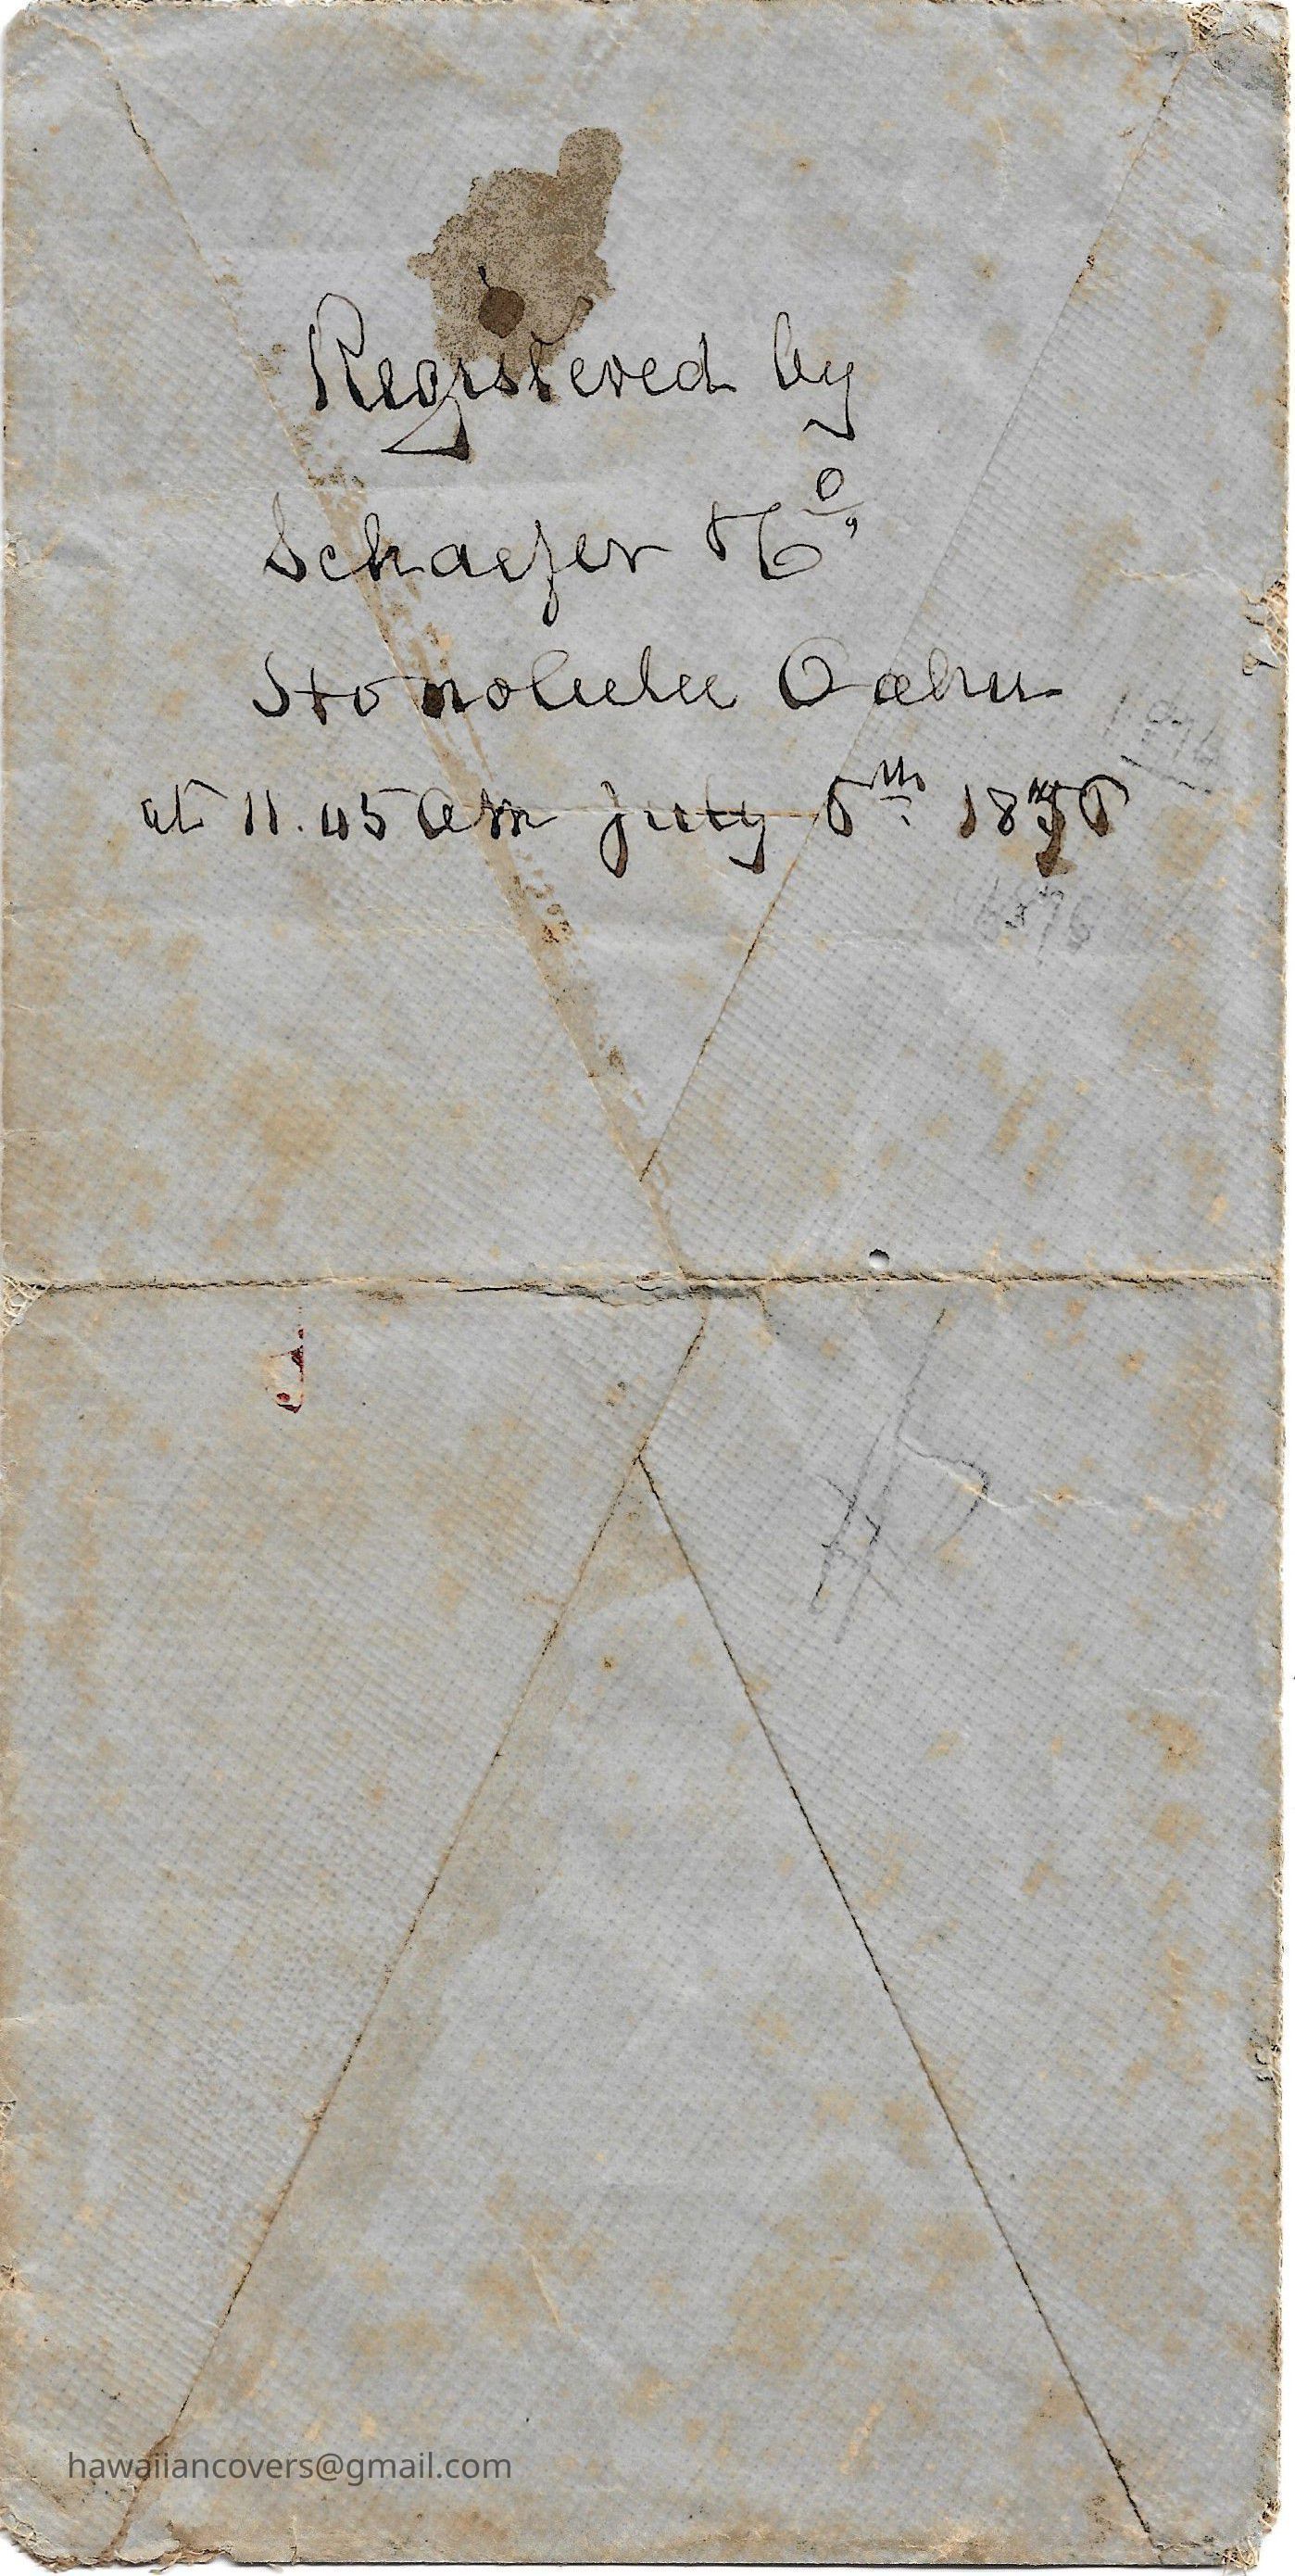 Registered by
Schaefer & Co,
Honolulu Oahu
at 11.45 am July 6th 1876
1876
1876
hawaiiancovers@gmail.com